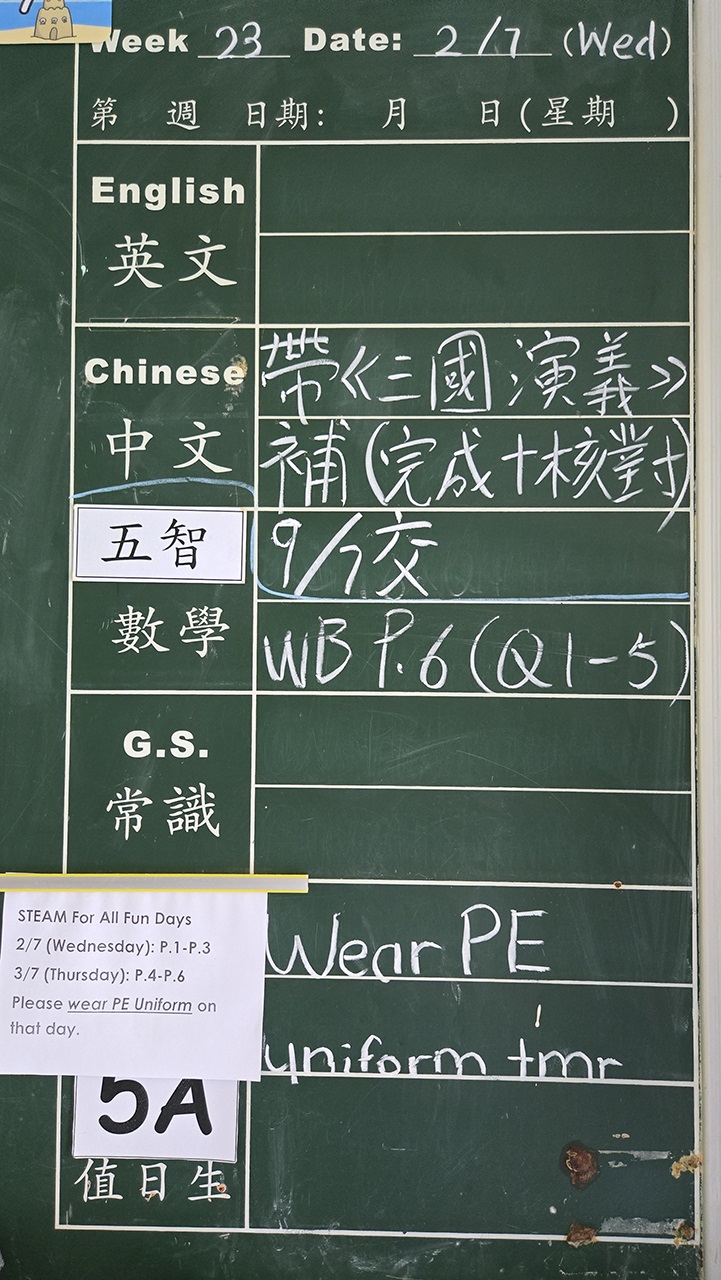 Week 23 Date: 2/7 (Wed)
第 週 日期: 月 日(星期 )
English
英文
Chinese 帶《三國演義》
中文 補(完成+核對)
五智 9/7交
數學 WB P.6(Q1-5)
G.S.
常識
STEAM For All Fun Days
2/7 (Wednesday): P.1-P.3
3/7 (Thursday): P.4-P.6
Please wear PE Uniform on
that day.
Wear PE
uniform tmr!
5A
值日生